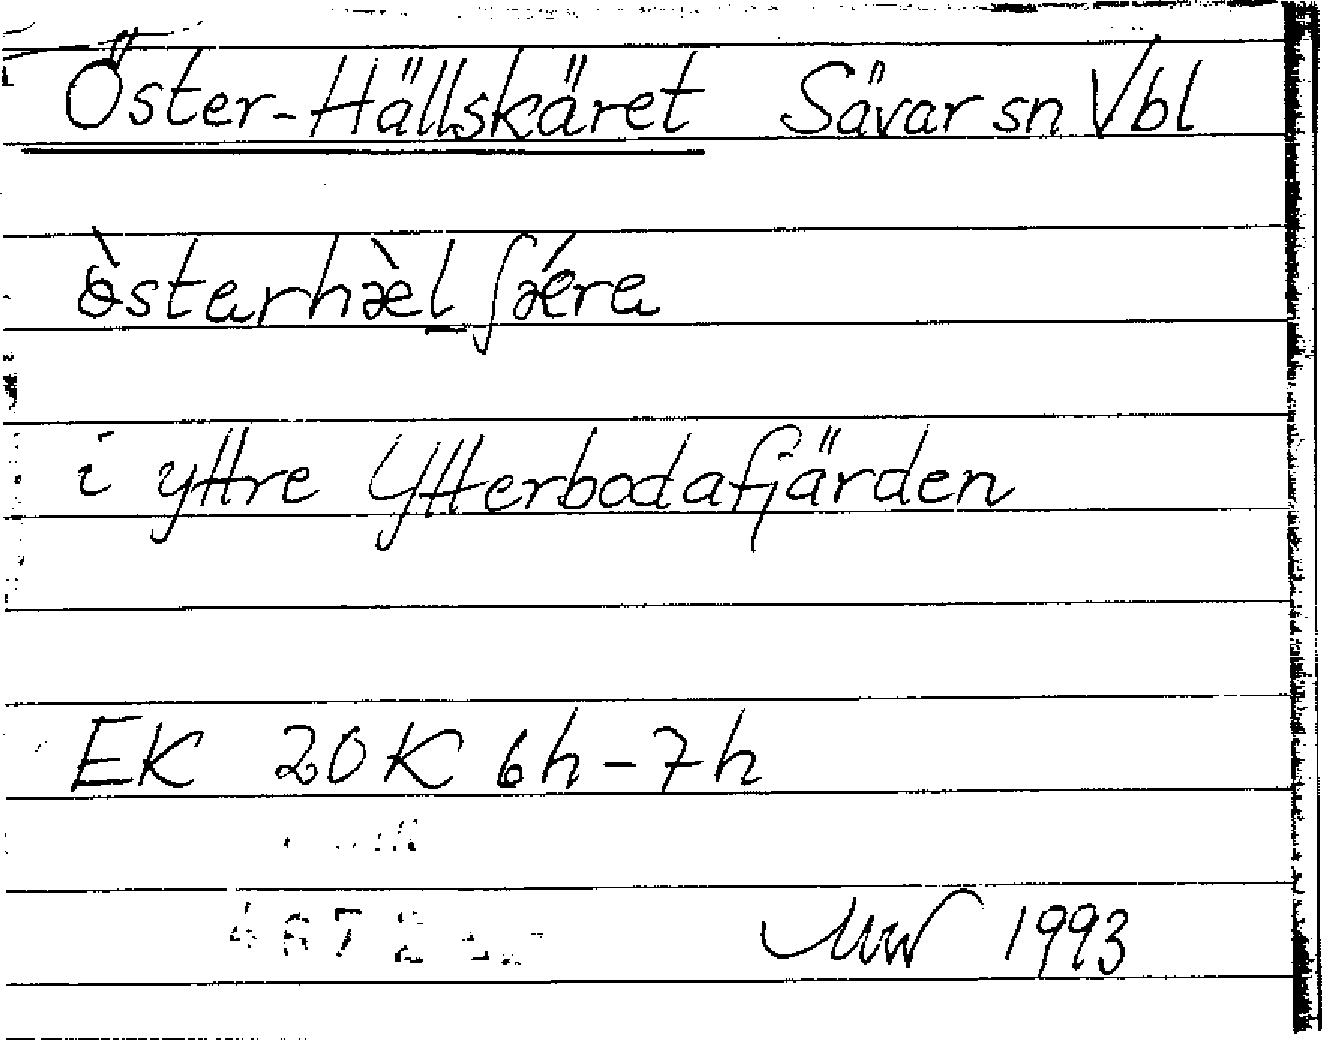 Öster-Hällskäret Sävar sn Vbl
òsterhæ̀l ʃǽra
i yttre Ytterbodafjärden
EK 20K 6h-7h
1993